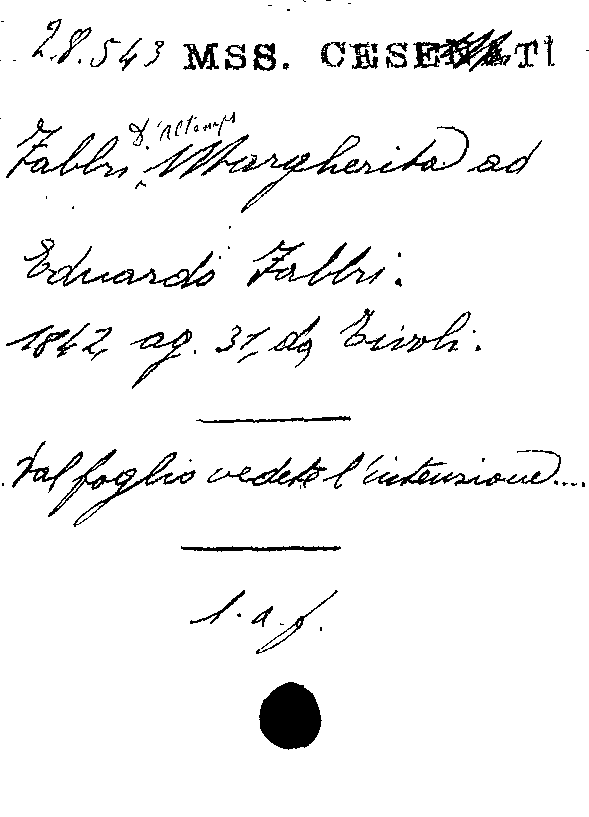 28.543 MSS. CESENATI
D'Altemps
Fabbri Margherita ad
Eduardo Fabbri.
1842, ag. 31, da Tivoli.
Dal foglio vedete l'intensione....
l. a. f.